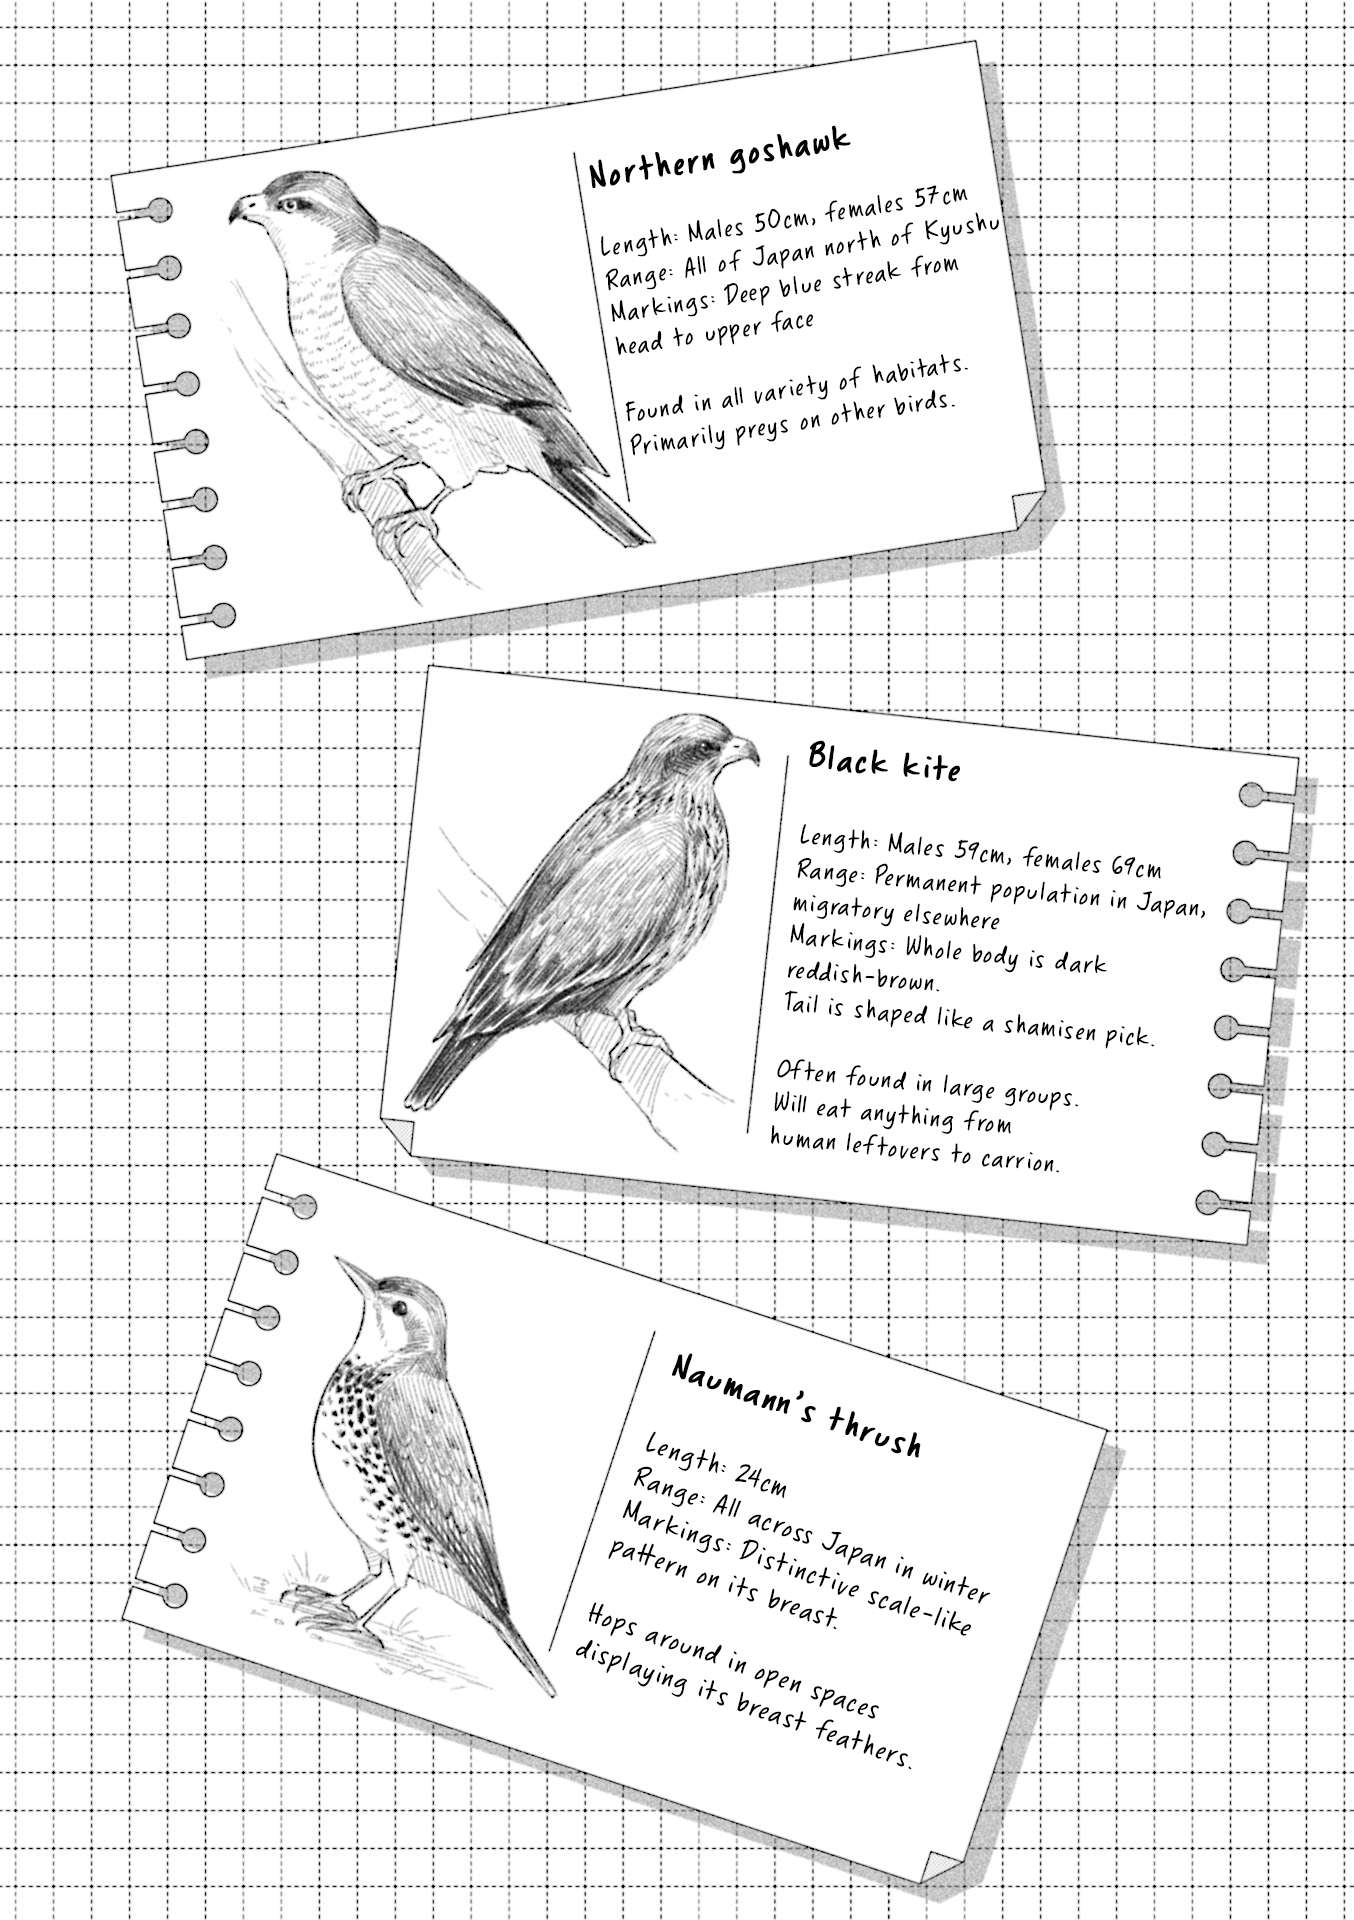 Northern goshawk
Length: Males 50cm, females 57cm
Range: All of Japan north of Kyushu
Markings: Deep blue streak from
head to upper face
Found in all variety of habitats.
Primarily preys on other birds.
Black kite
Length: Males 59cm, females 69cm
Range: Permanent population in Japan,
migratory elsewhere
Markings: Whole body is dark
reddish-brown.
Tail is shaped like a shamisen pick.
Often found in large groups.
Will eat anything from
human leftovers to carrion.
Naumann's thrush
Length: 24cm
Range: All across Japan in winter
Markings: Distinctive scale-like
pattern on its breast.
Hops around in open spaces
displaying its breast feathers.